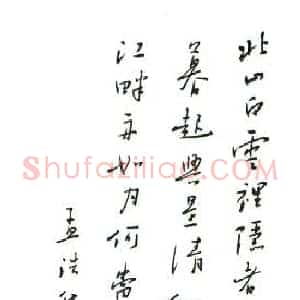 北山白雲裡隱者
暮起興是清
江畔舟如月何當
孟浩